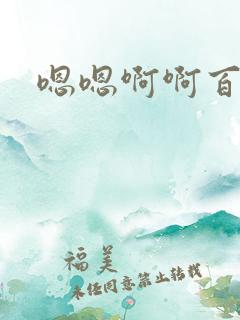 嗯嗯啊啊百
福美
未经同意禁止转载